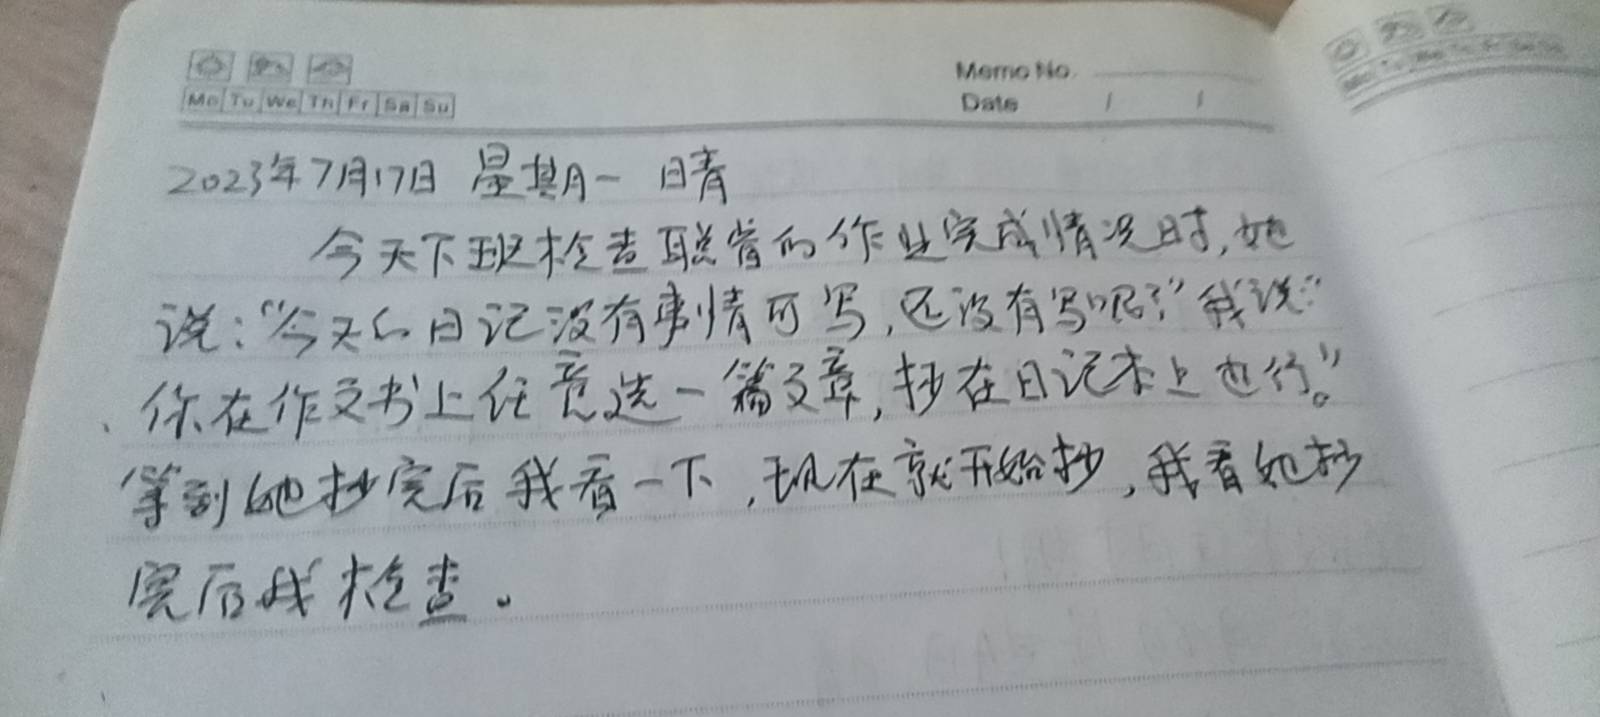 Mo Tu We Th Fr Sa Su
Memo No.
Date / /
2023年7月17日 星期一 晴
今天下班检查聪睿的作业完成情况时,她
说:“今天的日记没有事情可写,还没有写呢?”我说:“
你在作文书上任意选一篇文章,抄在日记本上也行。”
等到她抄完后我看一下,现在就开始抄,我看她抄
完后我检查。